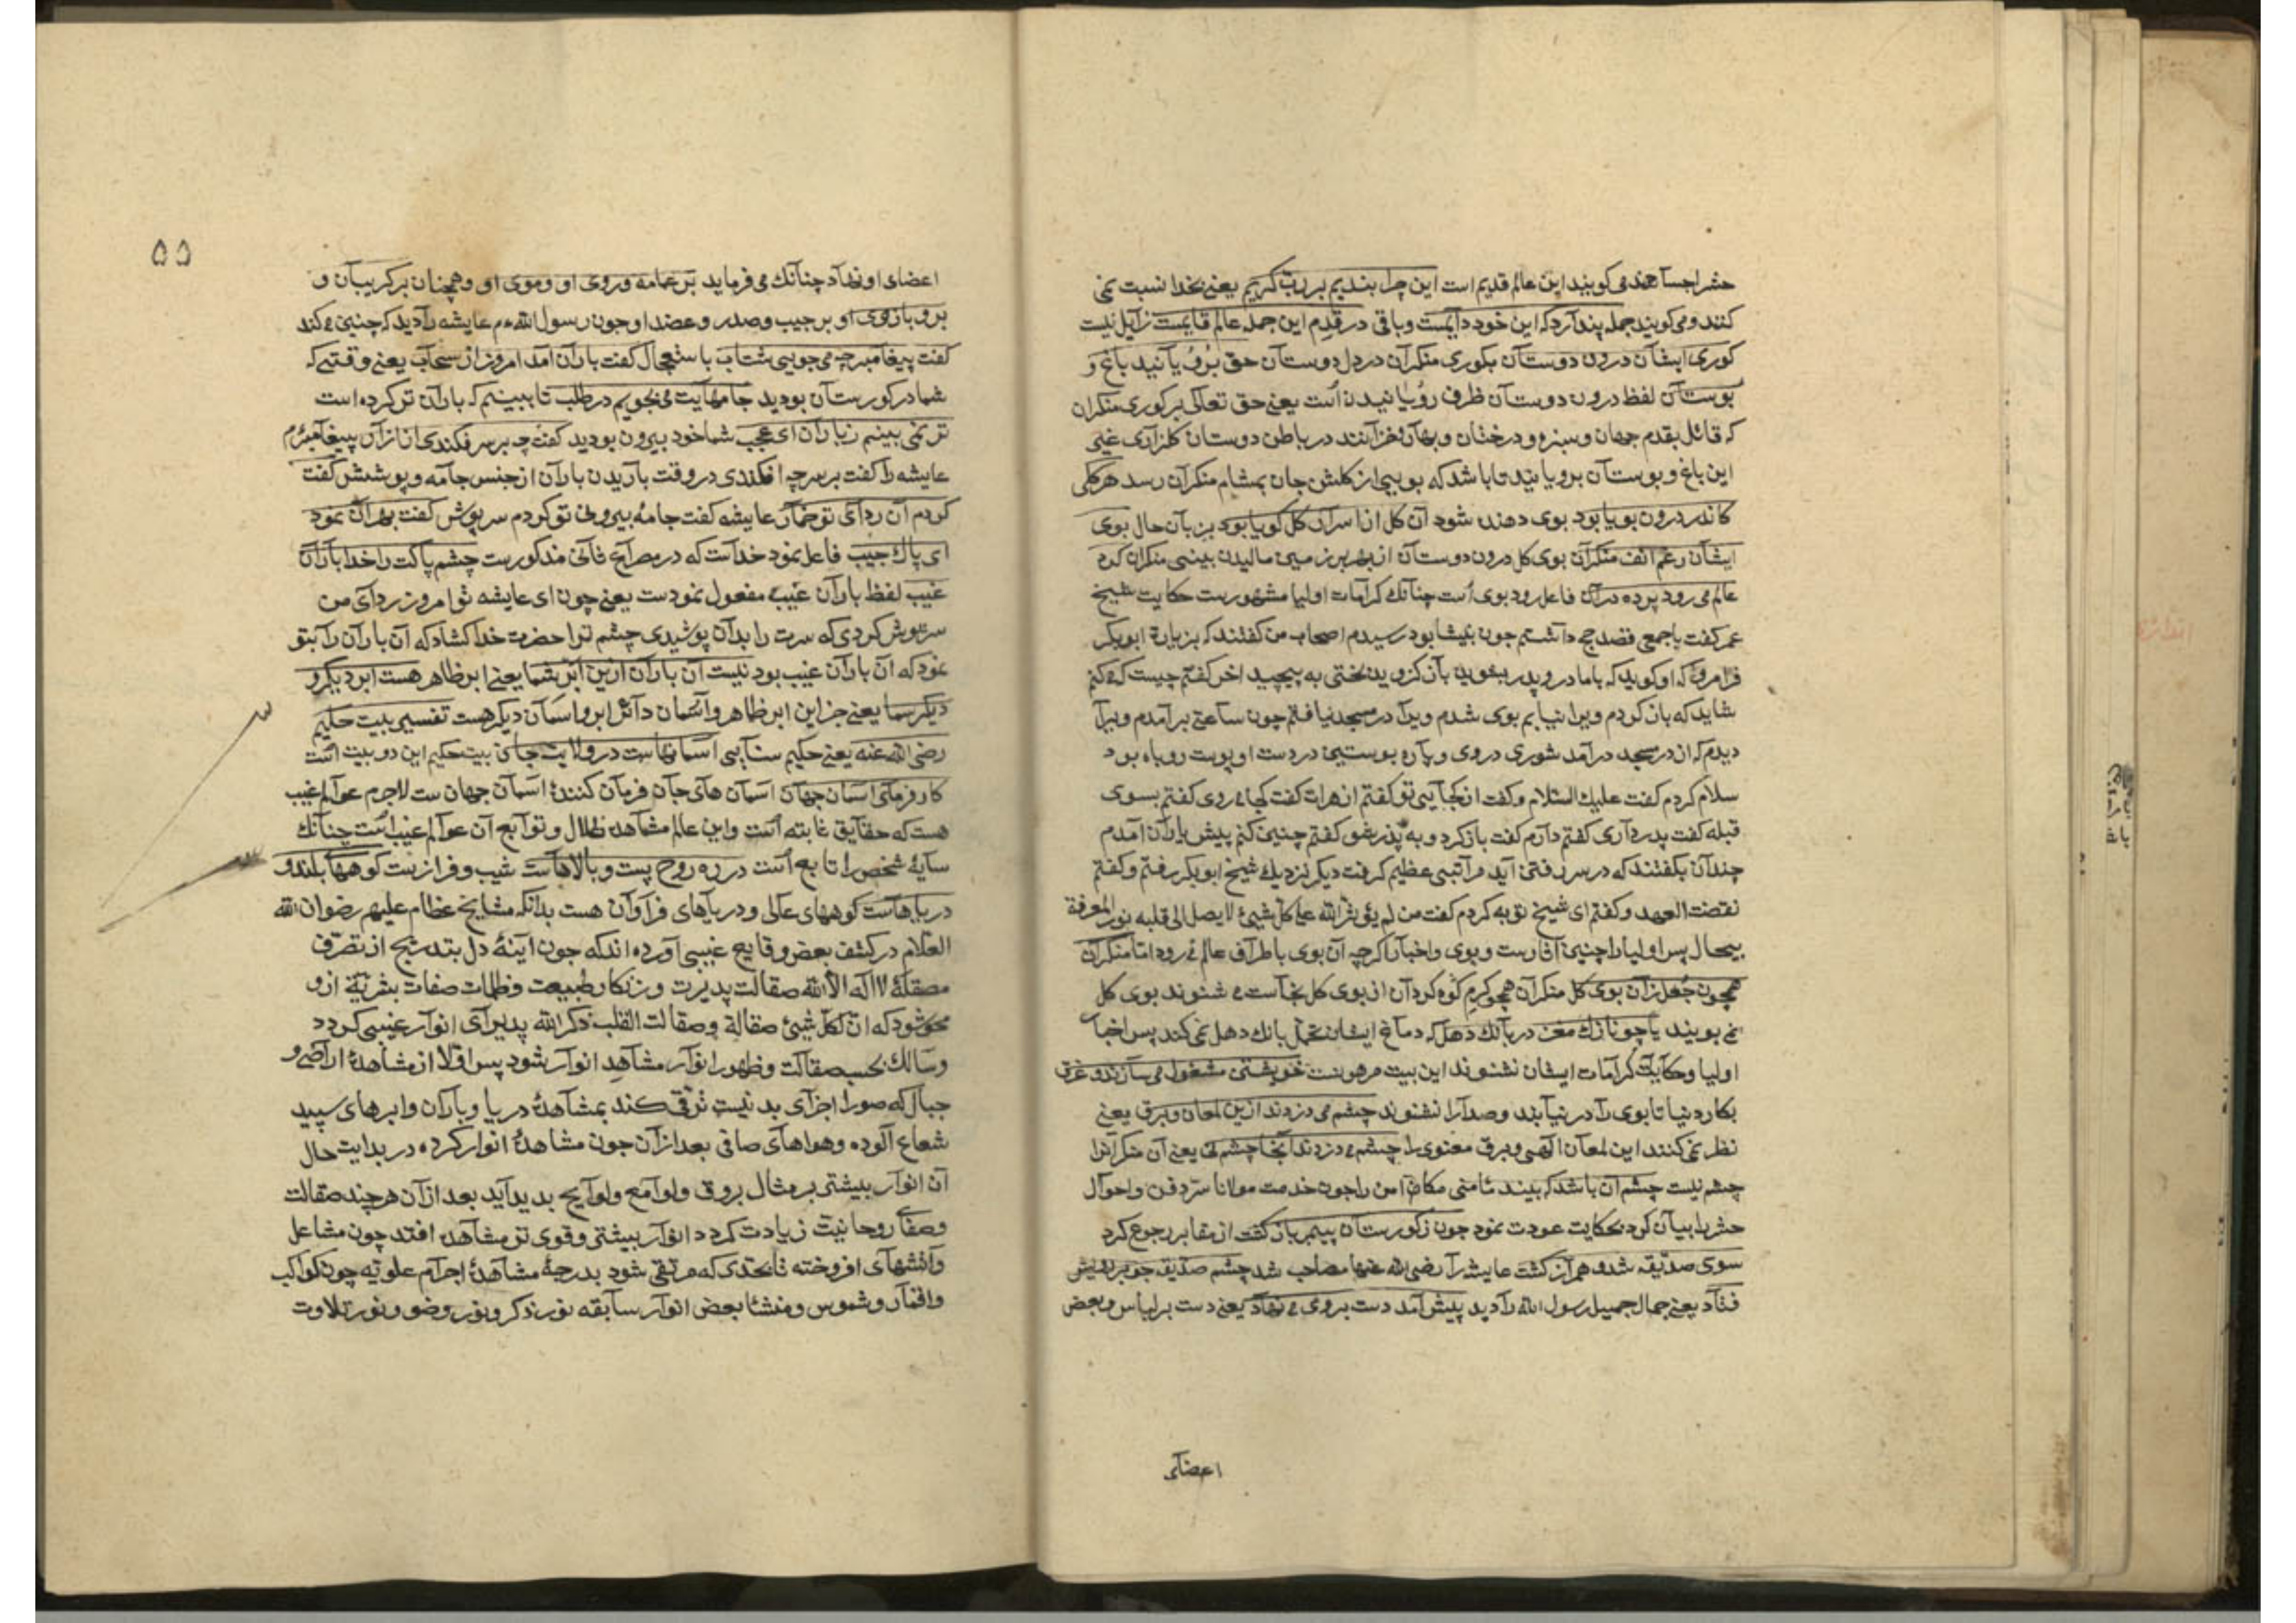 حشر اجساهندمی کویند این عالم قدیم است این چرا بندیم بر رب کریم یعنی بخدا نسبت نمی
کنند و می کویند جمله پندارد که این خود دایمست و باقی در قدم این جمله عالم قایمست زایل نیست
کوری ایشان درون دوستان بکوری منکران در دل دوستان حق برویانید باغ و
بوستان لفظ درون دوستان ظرف رویانیدن است یعنی حق تعالی بر کوری منکران
که قائل بقدم جهان و سبزه و درختان و بهار و خزانند در باطن دوستان کلزاری غیبی
این باغ و بوستان برویانید تا باشد که بویی از کلشن جان بمشام منکران رسد هر کلی
کاندر درون بویا بود بوی دهنده شود آن کل از اسرار کل کویا بود بزبان حال بوی
ایشان رغم انف منکران بوی کل درون دوستان از بهر بر زمین مالیدن بینی منکران کرد
عالم می رود پرده دران فاعل رود بوی است چنانک کرامات اولیا مشهورست حکایت شیخ
عمر کفت با جمعی قصد حج داشتم چون بنیشابور رسیدم اصحاب من کفتند که بزیارة ابوبکر
فرامرو که او کوید که باما در و پدر بشوید بازکردید بختی به پیچید اخر کفتم چیست که کنم
شاید که باز کردم ویرا نیابم بوی شدم ویرا در مسجد نیافتم چون ساعتی برآمدم ویرا
دیدم که از در مسجد درآمد شوری در وی و پاره پوستین در دست او پوست روباه بود
سلام کردم کفت علیک السلام و کفت از کجایی تو کفتم از هرات کفت کجا می روی کفتم بسوی
قبله کفت پدر داری کفتم دارم کفت باز کرد و به پدر شو کفتم چنین کنم پیش یاران آمدم
چندان بکفتند که در سر رفتن آید مرا تبی عظیم کرفت دیکر نزدیک شیخ ابوبکر رفتم و کفتم
نقضت العهد و کفتم ای شیخ توبه کردم کفت من لم یؤثر الله علی کل شیئ لا یصل الی قلبه نور المعرفة
بیحال پس اولیا را چنین آثارست و بوی و اخبار اکرچه آن بوی باطراف عالم می رود اما منکران
همچون جعل زان بوی کل منکران همچو کرم کوه کردان از بوی کل نجاست می شنوند بوی کل
نمی بویند یا چو نازک مغز در بانک دهل که دماغ ایشان تحمل بانک دهل نمی کند پس اخبار
اولیا و حکایت کرامات ایشان نشنوند این بیت مرهونست خویشتن مشغول می سازند و غرق
بکار دنیا تا بوی را در نیابند و صدا را نشنوند چشم می دزدند ازین لمعان و برق یعنی
نظر نمی کنند این لمعان الهی و برق معنوی را چشم می دزدند آنجا چشم نی یعنی آن منکرانرا
چشم نیست چشم آن باشد که بیند مأمنی مکان امن را چون خدمت مولانا سر دفن و احوال
حشر را بیان کرد بحکایت عودت نمود چون ز کورستان پیمبر باز کشت از مقابر رجوع کرد
سوی صدیقه شد و همراز کشت عایشه را رضی الله عنها مصاحب شد چشم صدیقه چو بر رویش
فتاد یعنی جمال جمیل رسول الله را دید پیش آمد دست بروی می نهاد یعنی دست بر لباس و بعض
اعضای
۵۵
اعضای او نهاد چنانک می فرماید بر عمامه و روی او و موی او و همچنان بر کریبان و
بر و بازوی او بر جیب و صدر و عضد او چون رسول الله م عایشه را دید که چنین می کند
کفت پیغامبر چه می جویی شتاب باستعجال کفت باران آمد امروز از سحاب یعنی وقتی که
شما در کورستان بودید جامهایت می بجویم در طلب تا ببینم که باران تر کرده است
تر نمی بینم ز باران ای عجب شما خود بیرون بودید کفت چه بر سر فکندی از ازار پیغامبرم
عایشه را کفت بر سر چه افکندی در وقت باریدن باران از جنس جامه و پوشش کفت
کردم آن ردای تو خمار عایشه کفت جامۀ بیرونی تو کردم سرپوش کفت بهر آن نمود
ای پاک جیب فاعل نمود خداست که در مصراع ثانی مذکورست چشم پاکت را خدا باران
غیب لفظ باران غیب مفعول نمودست یعنی چون ای عایشه تو امروز ردای من
سرپوش کردی که سرت را بدان پوشیدی چشم ترا حضرت خدا کشاد که آن باران را بتو
نمود که آن باران غیب بود نیست آن باران ازین ابر شما یعنی ابر ظاهر هست ابر دیکر و
دیکر سما یعنی جز این ابر ظاهر و آسمان دائر ابر و اسمان دیکر هست تفسیر بیت حکیم
رضی الله عنه یعنی حکیم سنایی اسمانهاست در ولایت جان بیت حکیم این دو بیت است
کارفرمای اسمان جهان اسمان های جان فرمان کنندۀ اسمان جهان ست لاجرم عوالم غیب
هست که حقایق ثابته است و این عالم مشاهده ظلال و توابع آن عوالم غیب است چنانک
سایۀ شخص را تابع است در ره روح پست و بالاهاست شیب و فرازست کوههای بلند و
دریاهاست کوههای عالی و دریاهای فراوان هست بدانکه مشایخ عظام علیهم رضوان الله
العلام در کشف بعض وقایع غیبی آورده اند که چون اینۀ دل بتدریج از تصرف
مصقلۀ لا اله الا الله صقالت پذیرت و زنکار طبیعت و ظلمات صفات بشریة ازو
محو شود که ان لکل شیئ صقالة و صقالت القلب ذکر الله پذیرای انوار غیبی کردد
و سالک بحسب صقالت و ظهور انوار مشاهد انوار شود پس اولا از مشاهدۀ اراضی و
جبال که صور اجزای بدنیست ترقی کند بمشاهدۀ دریا و باران و ابرهای سپید
شعاع آلوده و هواهای صافی بعد ازان چون مشاهدۀ انوار کرده در بدایت حال
آن انوار بیشتر بر مثال بروق و لوامع و لوایح پدید آید بعد ازان هر چند صقالت
و صفای روحانیت زیادت کردد انوار بیشتر و قوی تر مشاهد افتد چون مشاعل
و آتشهای افروخته تا بحدی که مرتقی شود بدرجۀ مشاهدۀ اجرام علویه چون کواکب
و اقمار و شموس و منشئا بعض انوار سابقه نور ذکر و نور وضو و نور تلاوت